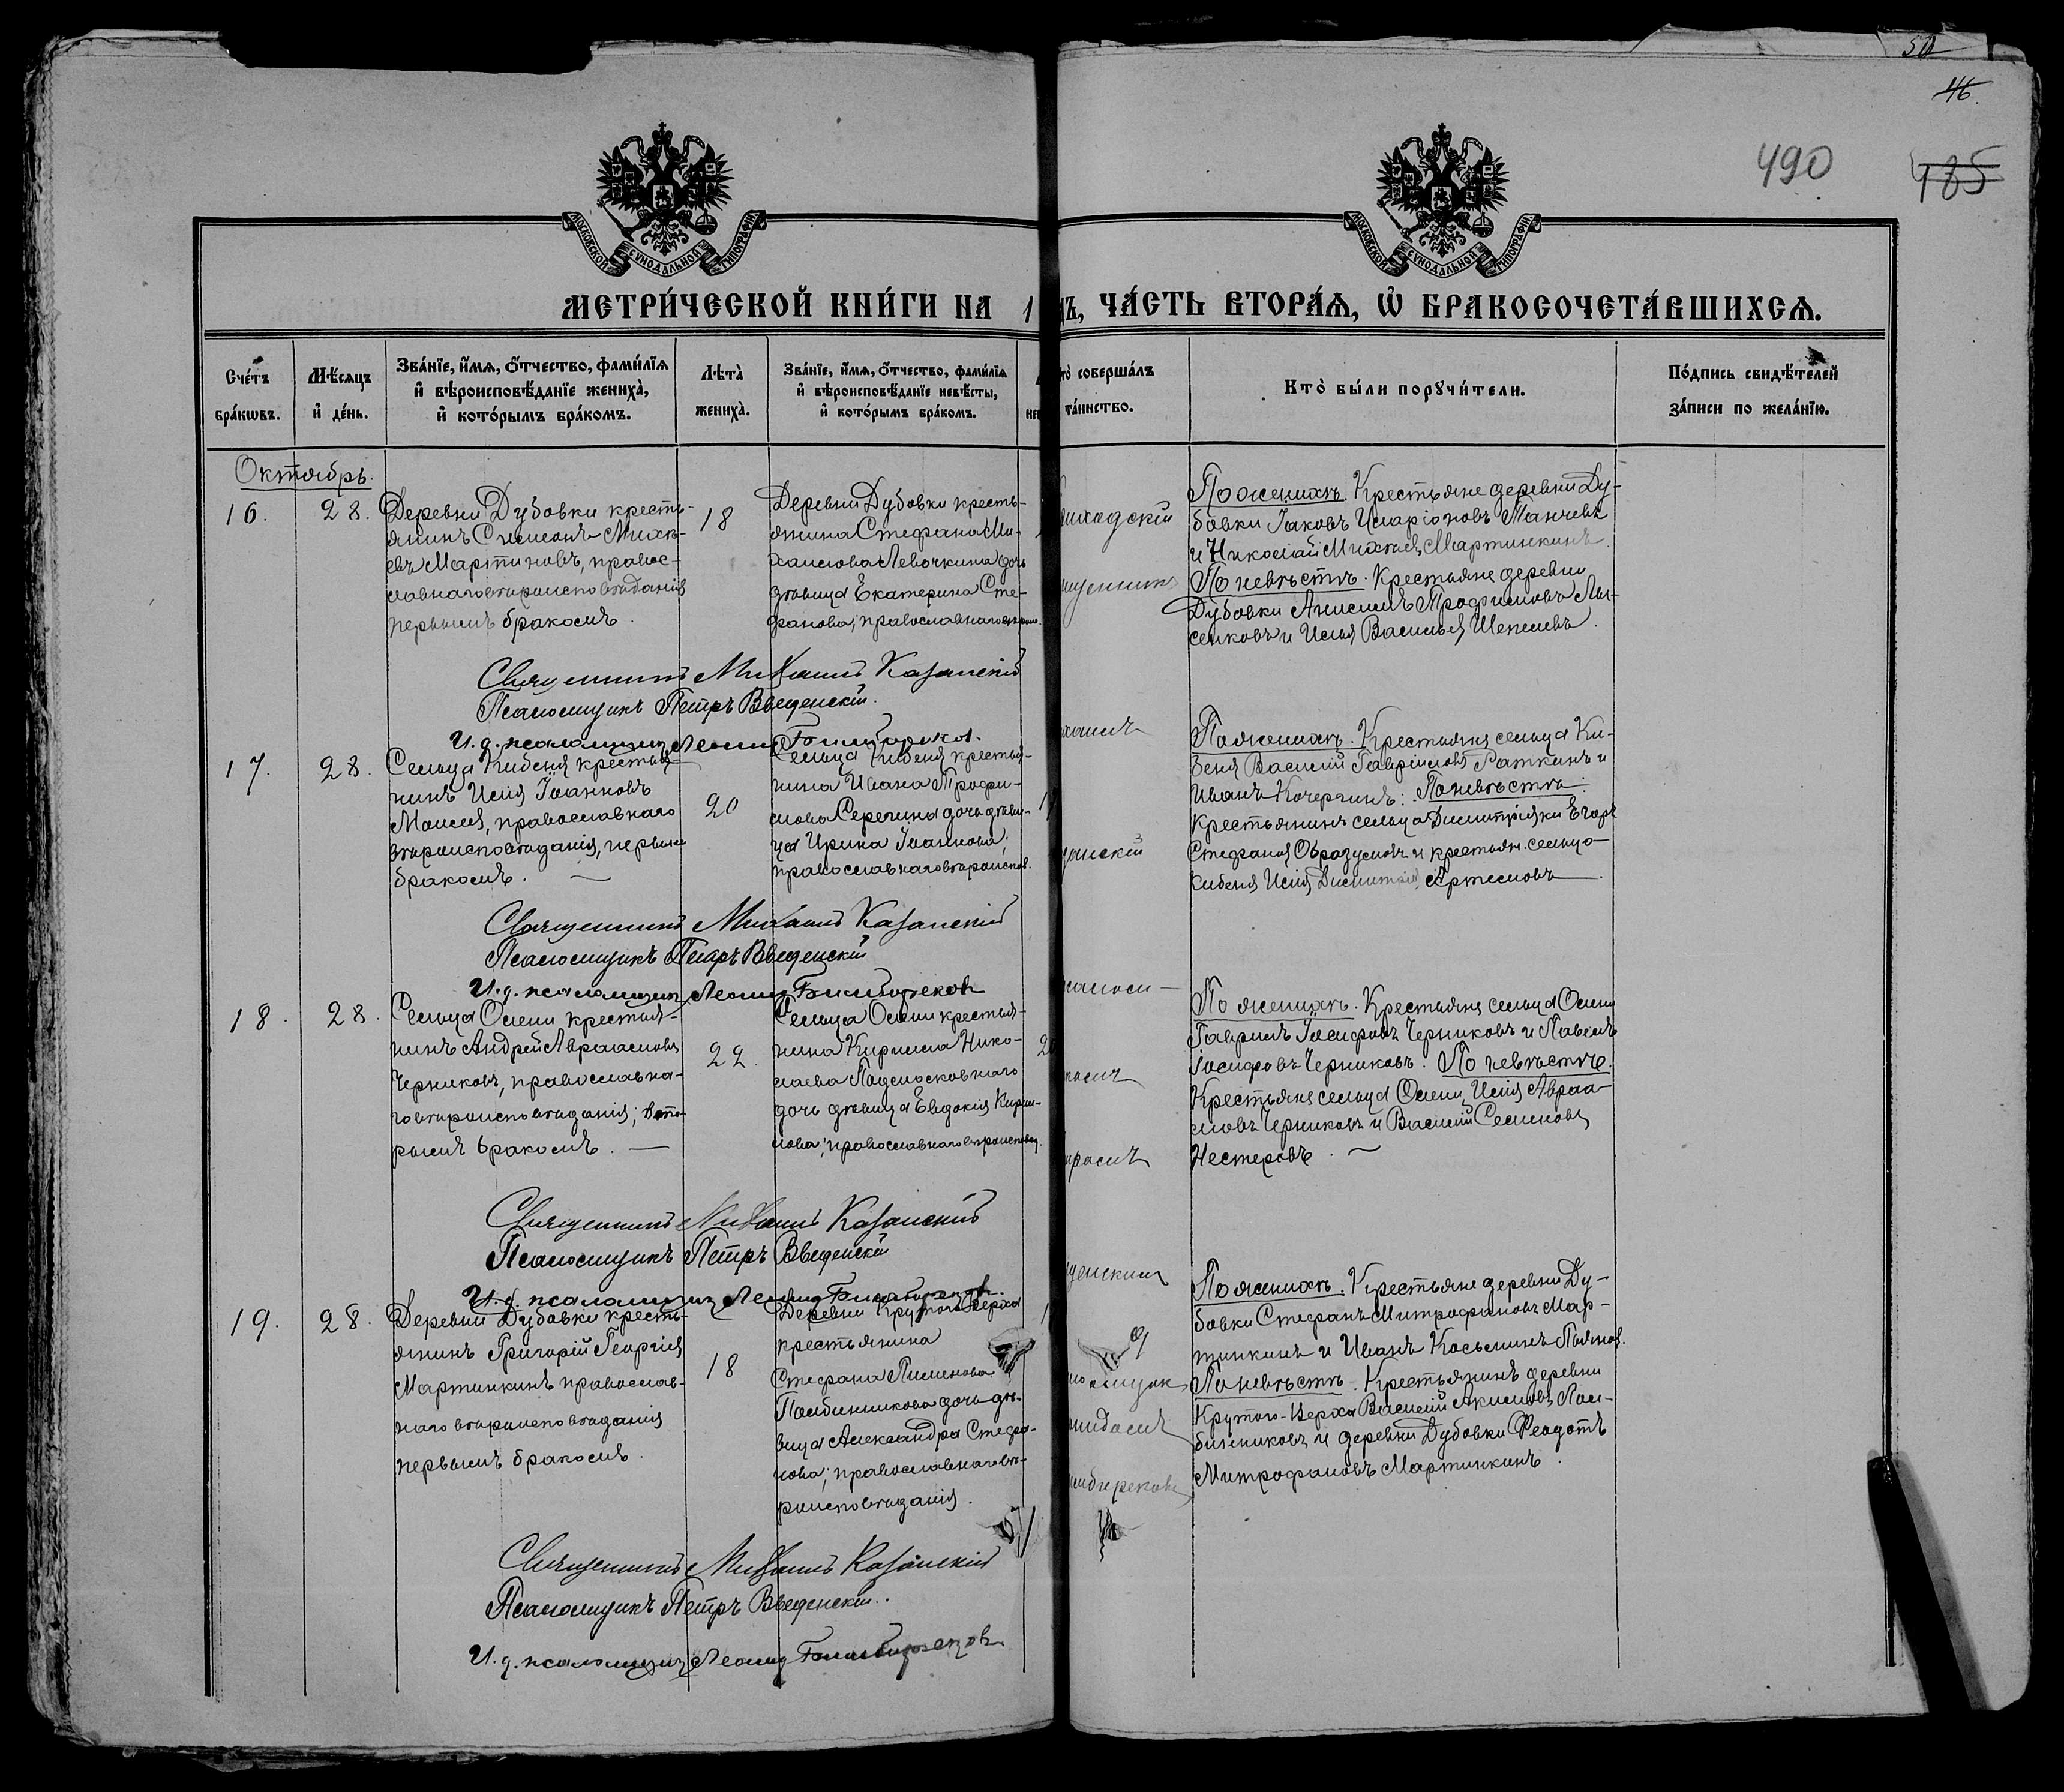 50
46.
490
485
МОСКОВСКОЙ СѴНОДАЛЬНОЙ ТИПОГРАФІИ
МОСКОВСКОЙ СѴНОДАЛЬНОЙ ТИПОГРАФІИ
МЕТРИ́ЧЕСКОЙ КНИ́ГИ НА 1
ЧА́СТЬ ВТОРА́Я, Ѽ БРАКОСОЧЕТА́ВШИХСЯ.
Сче́тъ бра́кωвъ.
Мѣ́сяцъ и҆ де́нь.
Зва́нїе, и҆́мя, о҆́тчество, фами́лїя
и҆ вѣроисповѣ́данїе жениха̀,
и҆ кото́рымъ бра́комъ.
Лѣта̀ жениха̀.
Зва́нїе, и҆́мя, о҆́тчество, фами́лїя
и҆ вѣроисповѣ́данїе невѣ́сты,
и҆ кото́рымъ бра́комъ.
соверша́лъ
та́инство.
Кто̀ бы́ли порꙋчи́тели.
По́дпись свидѣ́телей
за́писи по жела́нїю.
Октябрь.
16.
28.
Деревни Дубовки кресть-
янинъ Симеонъ Миха-
евъ Мартиновъ, правос-
лавнаго вѣроисповѣданія
первымъ бракомъ.
18
Деревни Дубовки кресть-
янина Стефана Ми-
хаилова Левочкина дочь
дѣвица Екатерина Сте-
фанова; православнаго
Поженихѣ. Крестьяне деревни Ду-
бовки Іаковъ Иларіоновъ
и Николай Михаил. Мартинкинъ.
По невѣстѣ. Крестьяне деревни
Дубовки Анисимъ Трофимовъ Лы-
сенковъ и Илья Васильев
Священникъ Михаилъ Казанскій
Псаломщикъ Петръ Введенскій.
И. д. псаломщика Леонид
17.
28.
Сельца Кибеня крестья-
нинъ Илія Іоанновъ
Моисеев, православнаго
вѣроисповѣданія, первым
бракомъ.
20
Сельца Кибеня крестья-
нина Ивана Трофи-
мова Серегина дочь дѣви-
ца Ирина Іоаннова;
православнаго вѣроиспов.
Поженихѣ. Крестьяне сельца Ки-
беня Василій Гавріиловъ Раткинъ и
Иванъ Кочергинъ: По невѣстѣ.
Крестьянинъ сельца Димитріевки Егоръ
Стефанов Образумовъ и крестьян. сельца
Кибеня Илія Димитріев Артемовъ
Священникъ Михаилъ Казанскій
Псаломщикъ Петръ Введенскій
И. д. псаломщика Леонид
18.
28.
Сельца Осени крестья-
нинъ Андрей Авраамовъ
Черниковъ, православна-
го вѣроисповѣданія; вто-
рымъ бракомъ.
22.
Сельца Осени крестья-
нина Кирилла Нико-
лаева Подмосковнаго
дочь дѣвица Евдокія Кирил-
лова; православнаго вѣроисповѣд.
По женихѣ. Крестьяне сельца Осени
Гавріилъ Іосифовъ Черниковъ и Павелъ
Іосифовъ Черниковъ. По невѣстѣ.
Крестьяне сельца Осени Илія Авраа-
мовъ Черниковъ и Василій Семеновъ
Нестеровъ.
Священникъ Михаилъ Казанскій
Псаломщикъ Петръ Введенскій
И. д. псаломщика Леонид
19.
28.
Деревни Дубовки кресть-
янинъ Григорій Георгіев
Мартинкинъ православ-
наго вѣроисповѣданія
первымъ бракомъ.
18
Деревни Крутого Верха
крестьянина
Стефана Пименова
дочь дѣ-
вица Александра Стефа-
нова; православнаго вѣ-
роисповѣданія.
По женихѣ. Крестьяне деревни Ду-
бовки Стефанъ Митрофановъ Мар-
тинкинъ и Иванъ Косьминъ
По невѣстѣ. Крестьянинъ деревни
Крутого-Верха Василій Акимовъ
и деревни Дубовки Феодотъ
Митрофановъ Мартинкинъ.
Священникъ Михаилъ Казанскій
Псаломщикъ Петръ Введенскій.
И. д. псаломщика Леонид